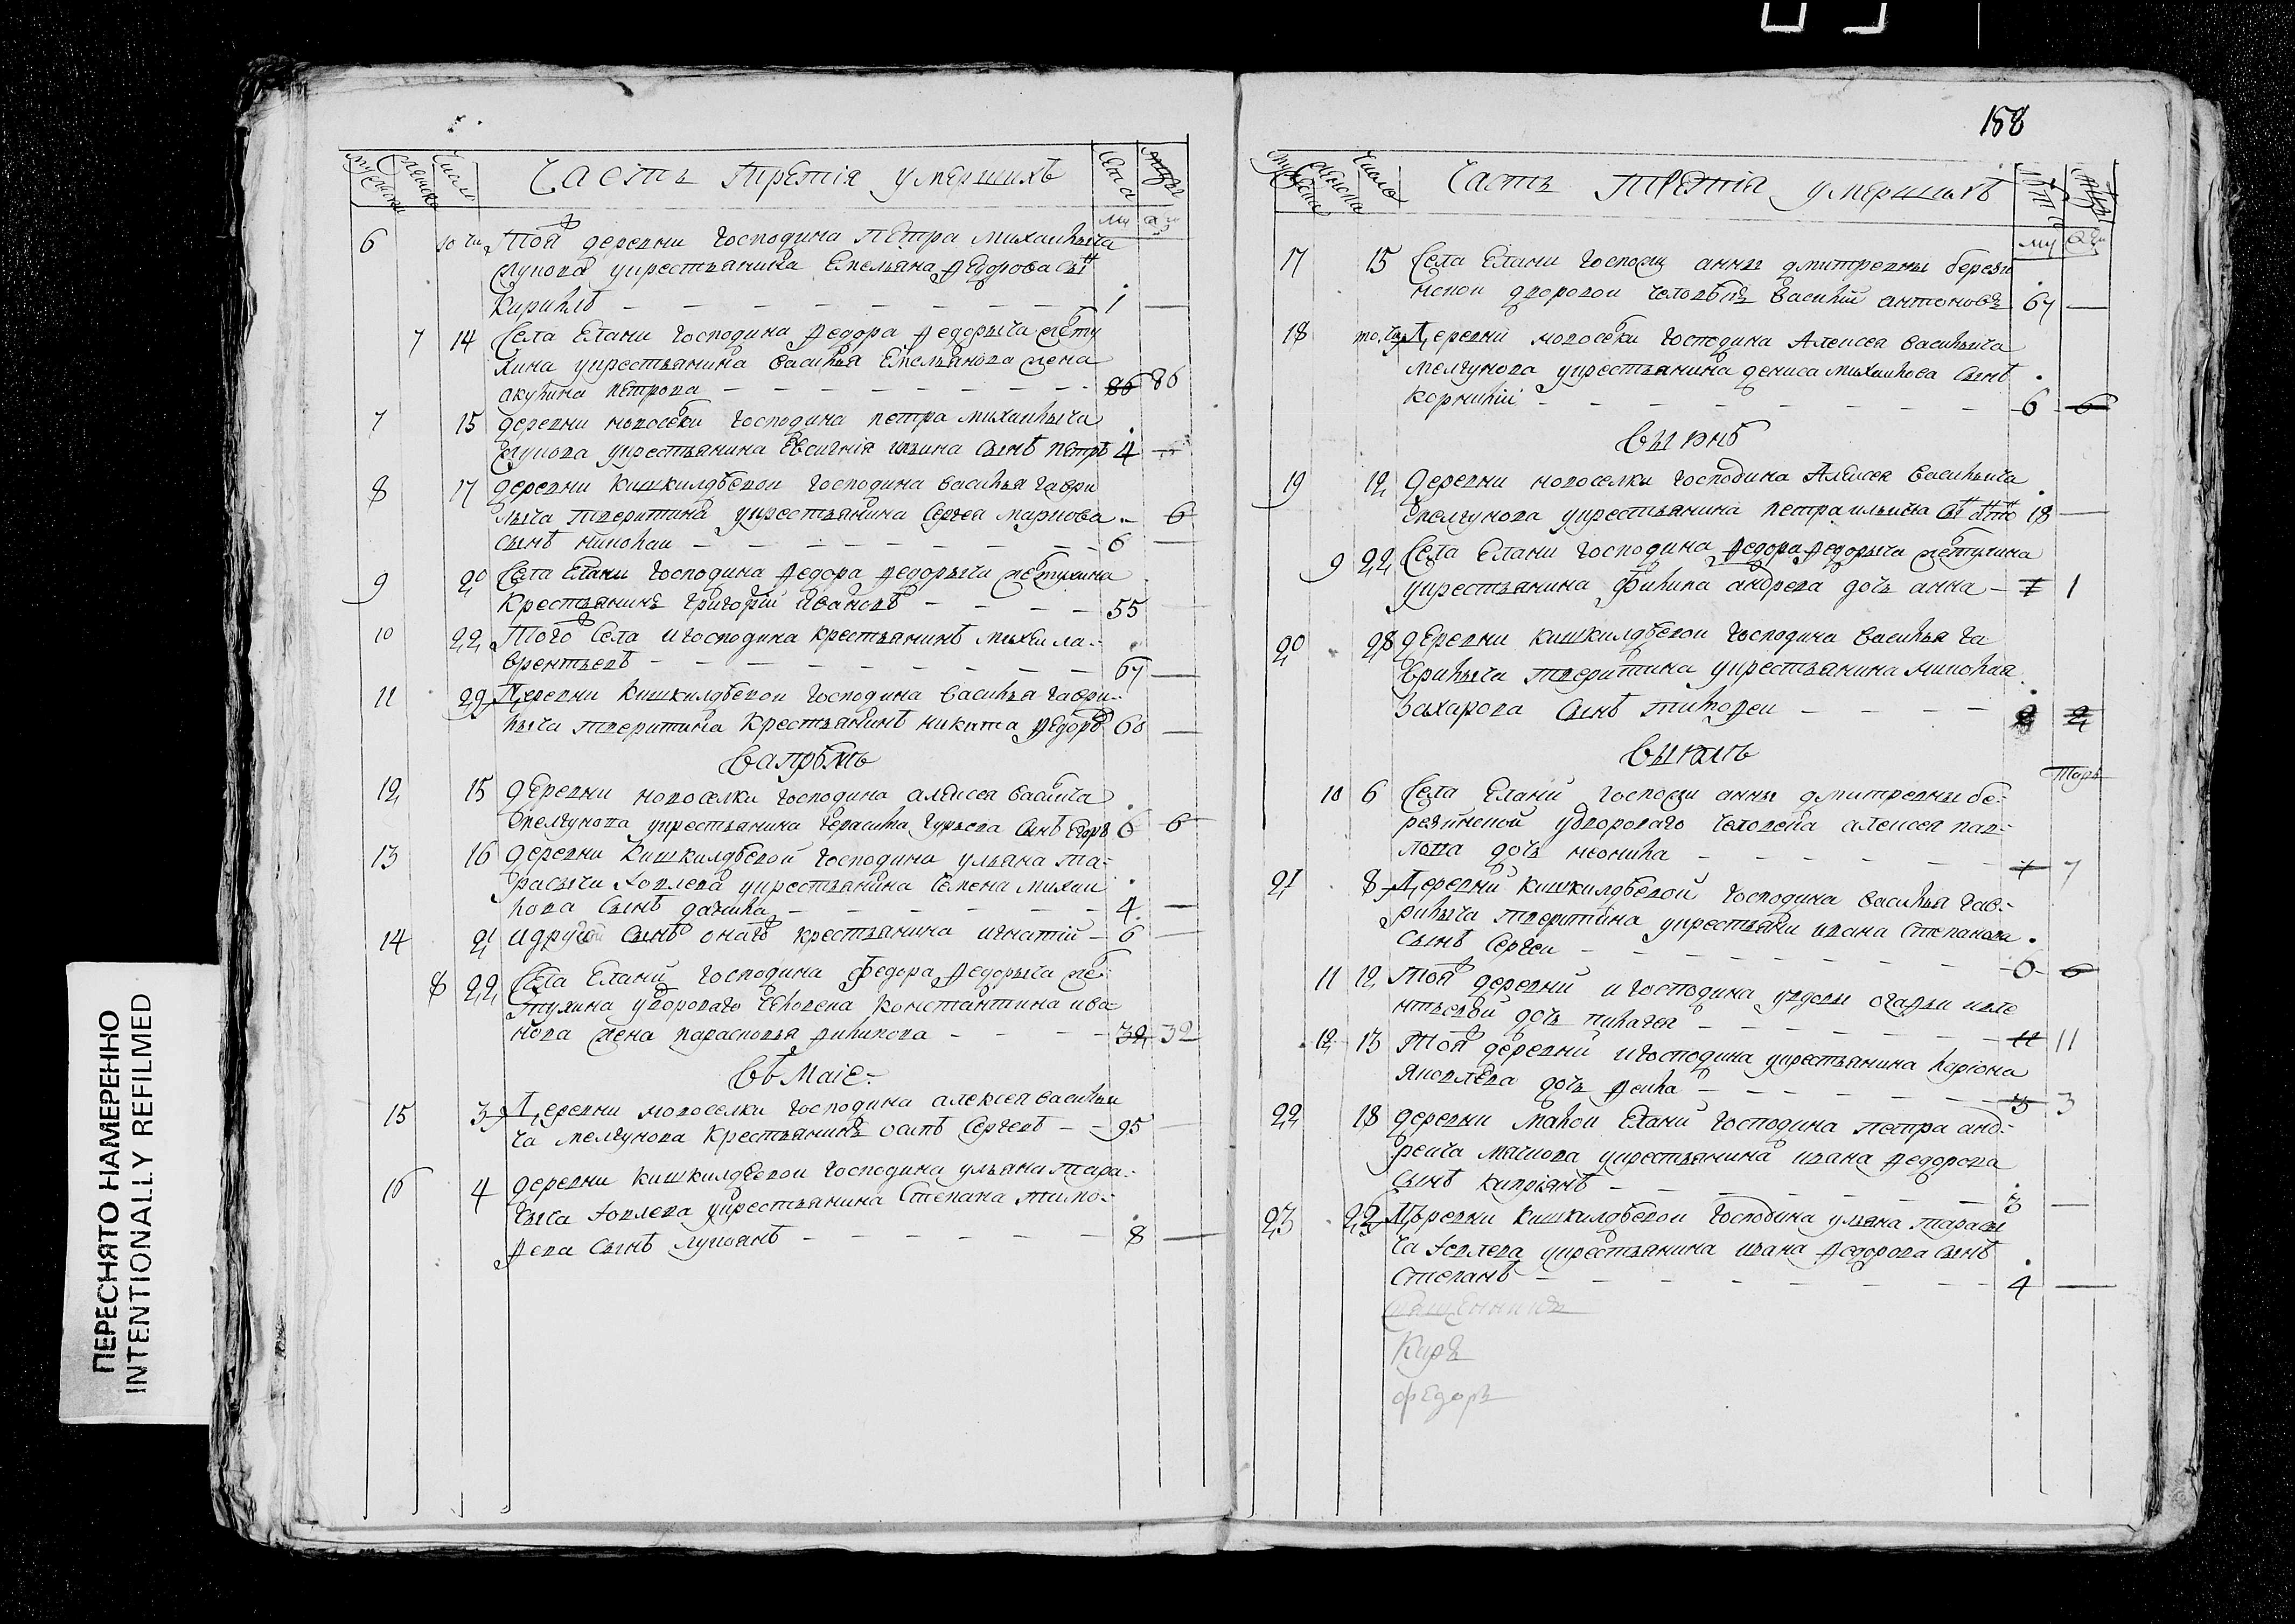 Часть третія умершихъ
Лета
му
6 то чи Тоя деревни Господина Петра Михаилыча
укрестьянина Емельяна Федорова сынъ
Кирилъ 1
7 14 Села Елани Господина Федора Федорыча пету
хина укрестьянина Василья Емельянова жена
акулина петрова 86 86
7 15 деревни новоселки Господина петра михаилыча
укрестьянина сынъ петръ 4
8 17 деревни Кишкилдѣевои Господина василья гаври
лыча тверитина укрестьянина Сергея маркова
сынъ николаи 6 6
9 20 Села Елани Господина Федора Федорыча петухина
Крестьянинъ Григорій Ивановъ 55
10 22 Того Села и господина крестьянинъ михеи ла-
врентьевъ 67
11 29 Деревни Кишкилдѣевои Господина василья гаври-
лыча тверитина Крестьянинъ никита Федоръ 60
12 15 деревни новоселки господина алексея
укрестьянина герасима гурьева сынъ Егоръ 6 6
13 16 деревни Кишкилдѣевой Господина ульяна та-
расыча укрестьянина Семена михаи
лова Сынъ данила 4
14 21 и другой сынъ онаго крестьянина игнатій 6
8 22 Села Елани Господина Федора Федорыча пе-
тухина удворового человека Константина ива
нова жена парасковья филипова 32 32
Въ Маіе
15 3 Деревни новоселки господина алексея василы
ча мелгунова Крестьянинъ осипъ Сергеевъ 95
16 4 деревни кишкилдѣевои Господина ульяна тара-
сыча укрестьянина Степана тимо-
феева Сынъ лукьянъ 8
158
Число
Часть третія умершихъ
му
17 15 Села Елани Госпожи анны дмитревны берези
нскои дворовои человѣкъ василій антоновъ 67
18 то чи Деревни новоселки Господина Алексея василыча
мелгунова укрестьянина дениса михаилова сынъ
Корнилій 6 6
19 12 Деревни новоселки Господина Алексея василыча
мелгунова укрестьянина петра ильича 18
9 22 Села Елани Господина Федора Федорыча петухина
укрестьянина филипа андреева дочь анна 1 1
20 28 деревни кишкилдѣевои Господина василья га
врилыча тверитина укрестьянина николая
Захарова Сынъ тимофеи 2 2
10 6 Села Елани Госпожи анны дмитревны бе-
резинской удворового человека алексея пав-
лова дочь неонила 7 7
21 8 Деревни кишкилдѣевой Господина василья гав-
рилыча тверитина укрестьяни ивана степанова
сынъ Сергеи 6 6
11 12 Тоя деревни и господина удовы
дочь пелагея 11 11
12 13 Тоя деревни и господина укрестьянина ларіона
яковлева дочь 3 3
22 18 деревни малои Елани Господина петра анд-
реича укрестьянина ивана Федорова
сынъ киприянъ 3
23 22 Деревни кишкилдѣевои Господина уляна тарасы
ча укрестьянина ивана Федорова сынъ
Степанъ 4
священникъ
Киръ
федоръ
ПЕРЕСНЯТО НАМЕРЕННО
INTENTIONALLY REFILMED